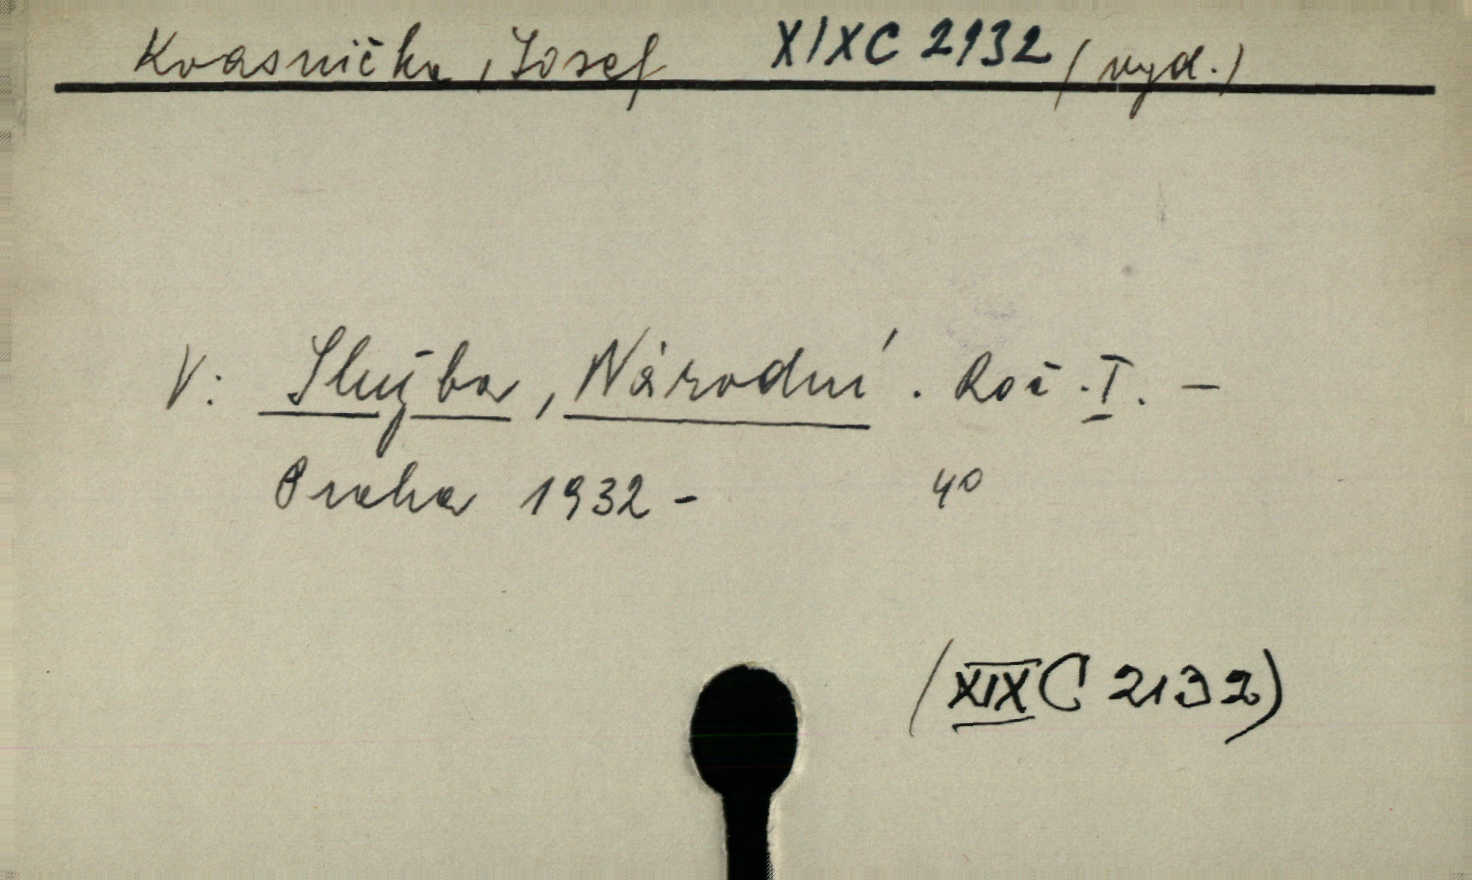 Kvasnička, Josef XIXC 2132 (vyd.)
V: Služba, Národní. Roč. I. –
Praha 1932 - 4°
(XIX C 2132)